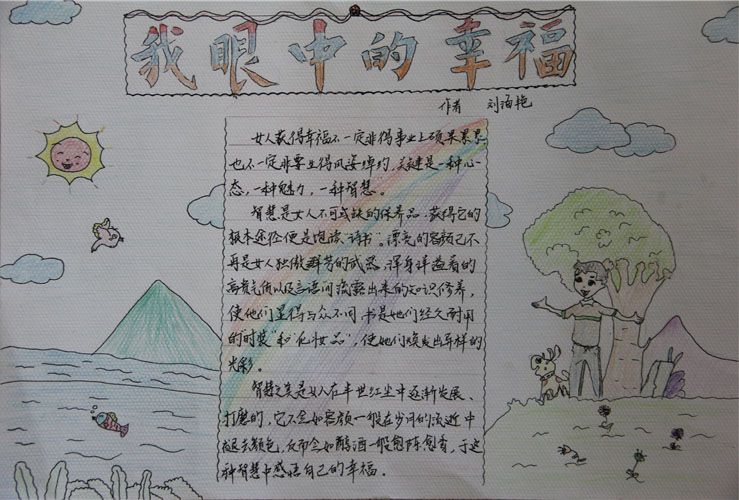 我眼中的幸福
作者 刘海艳
女人获得幸福不一定非得事业上硕果累累
也不一定非要生得风姿绰约,关键是一种心
态,一种魅力,一种智慧。
智慧是女人不可或缺的保养品,获得它的
根本途径便是饱读诗书。漂亮的容颜已不
再是女人独傲群芳的武器,浑身洋溢着的
高贵气质以及言语间流露出来的知识修养,
使他们显得与众不同,书是她们经久耐用
的"时装"和"化妆品",使她们焕发出异样的
光彩。
智慧之美是女人在半世红尘中逐渐发展、
打磨的,它不会如容颜一般在岁月的流逝中
褪去颜色,反而会如醇酒一般愈陈愈香,于这
种智慧中感悟自己的幸福。